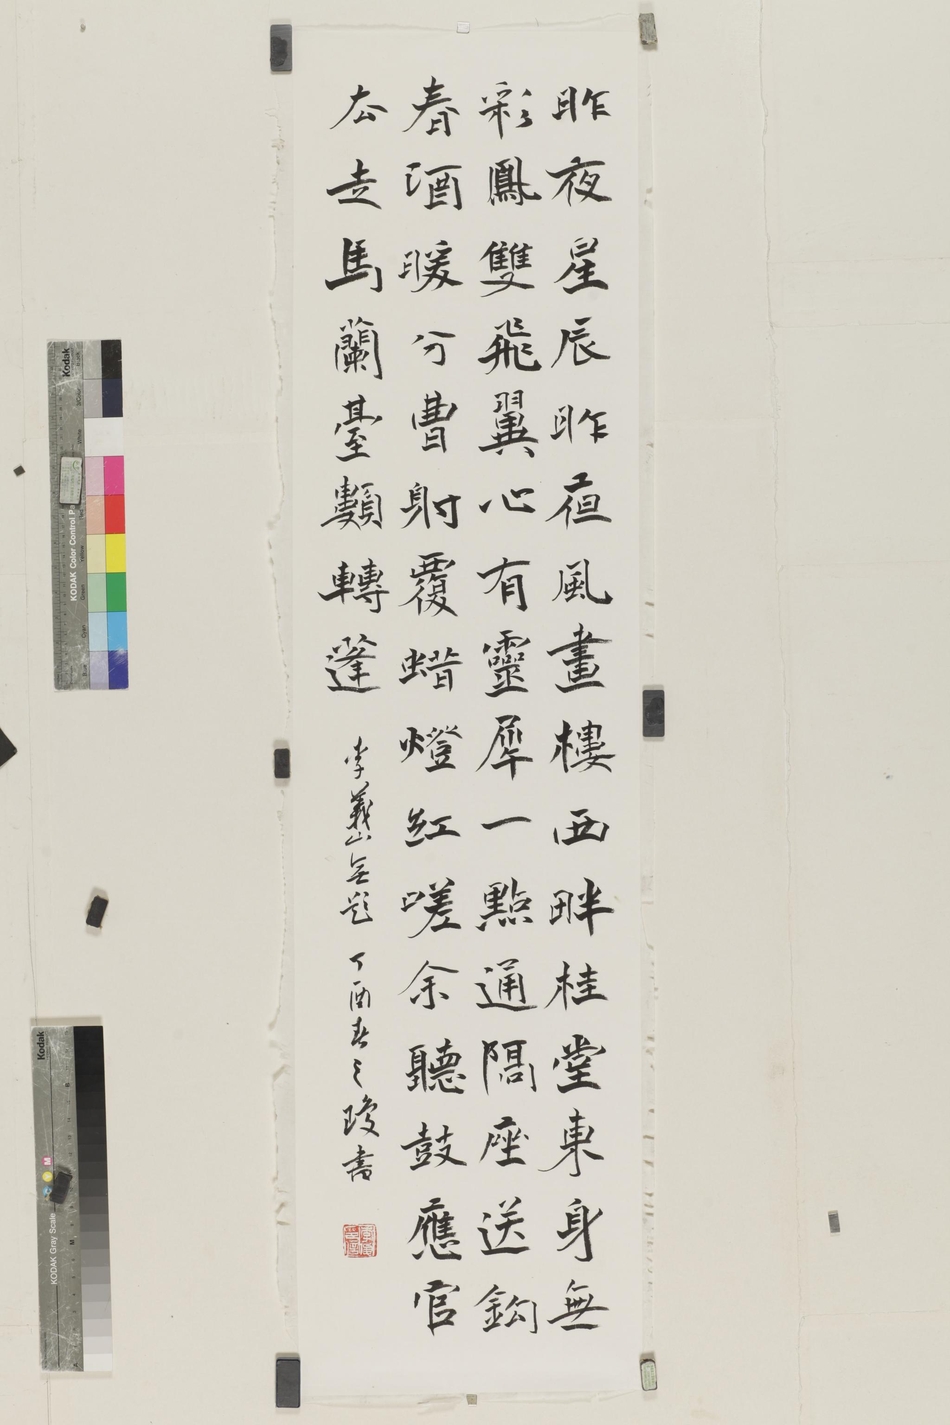 昨夜星辰昨夜風畫樓西畔桂堂東身無
彩鳳雙飛翼心有靈犀一點通隔座送鈎
春酒暖分曹射覆蜡燈紅嗟余聽鼓應官
去走馬蘭臺類轉蓬
李義山無題 丁酉春之 瓊書
Kodak
KODAK Color Control P
Kodak
KODAK Gray Scale
C Y M